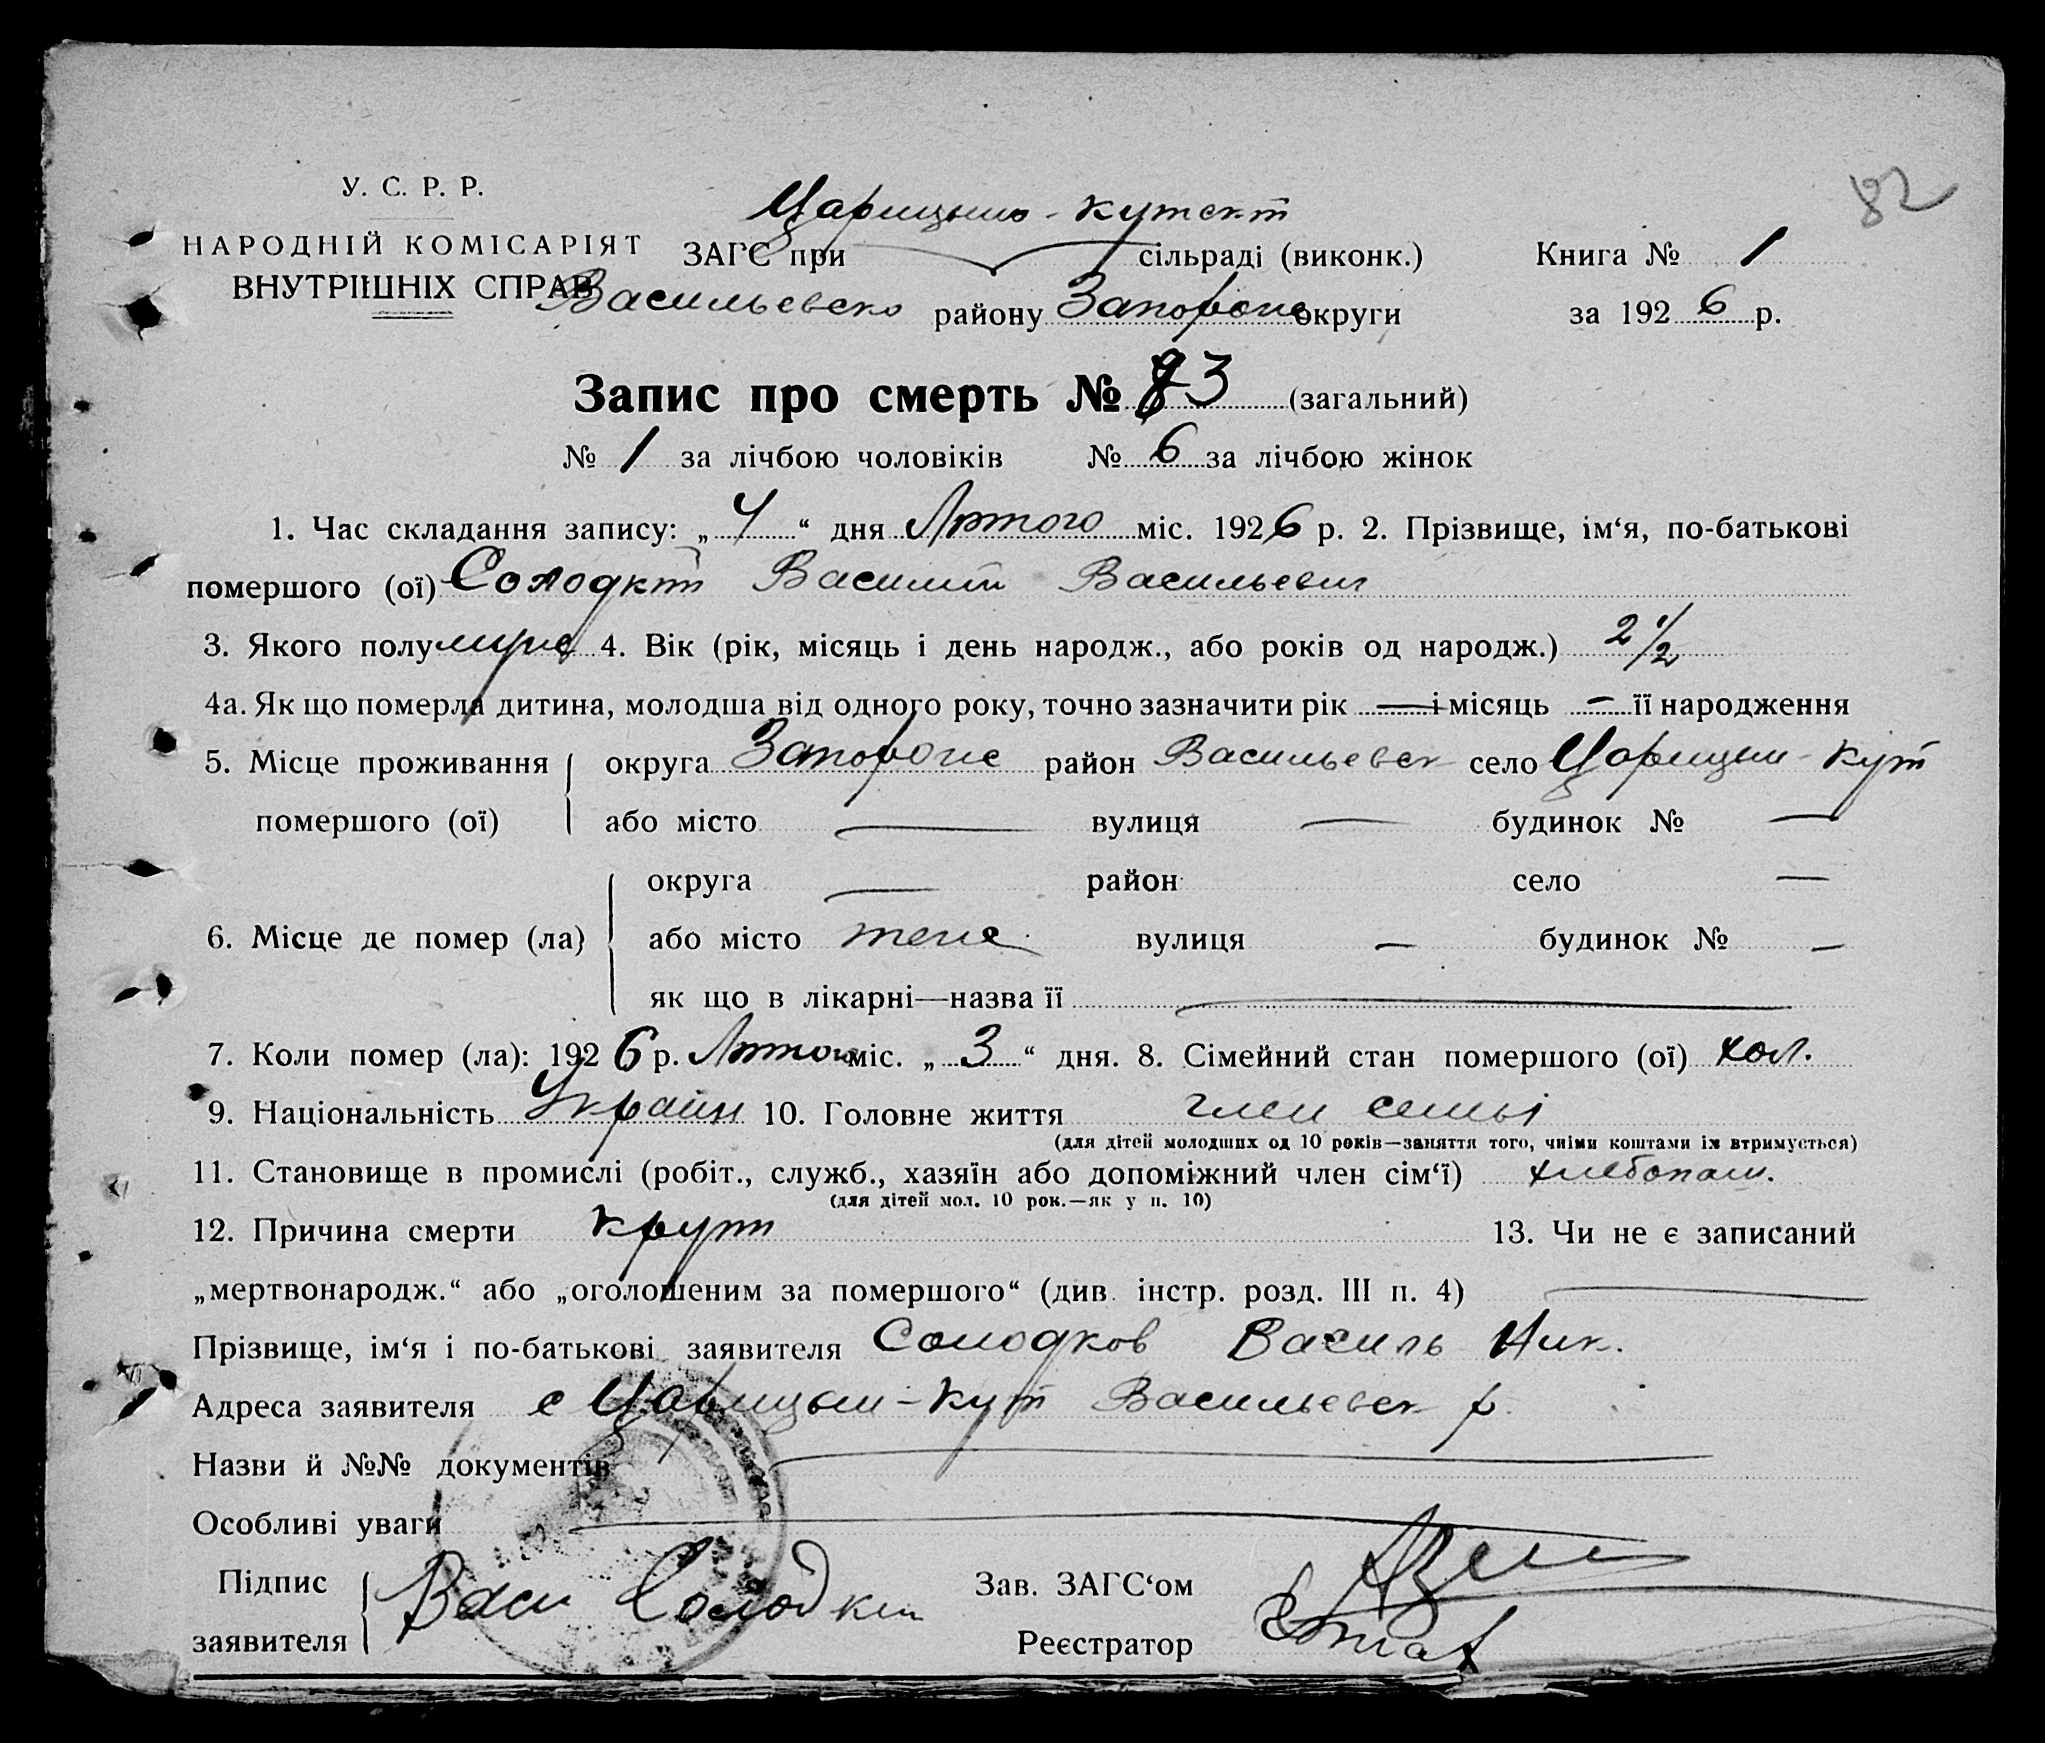 82
У. С. Р. Р.
НАРОДНІЙ КОМІСАРІЯТ
ВНУТРІШНІХ СПРАВ
Царицыно-кутскт
ЗАГС при сільраді (виконк.) Книга № 1
Васильевско району Запорож округи за 1926 р.
Запис про смерть № 3 (загальний)
№ 1 за лічбою чоловіків № 6 за лічбою жінок
1. Час складання запису: „ 4 “ дня Лютого міс. 1926 р. 2. Прізвище, ім‘я, по-батькові
помершого (ої) Солодкий Василий Васильевич
3. Якого полу мужс 4. Вік (рік, місяць і день народж., або років од народж.) 2 1/2
4а. Як що померла дитина, молодша від одного року, точно зазначити рік — і місяць — її народження
5. Місце проживання округа Запорож район Васильевск село Царицын-Кут
помершого (ої) або місто — вулиця — будинок № —
округа — район село —
6. Місце де помер (ла) або місто тоже вулиця — будинок № —
як що в лікарні—назва її —
7. Коли помер (ла): 1926 р. Лютого міс. „ 3 “ дня. 8. Сімейний стан помершого (ої) хол.
9. Національність Украйн 10. Головне життя член семьі
(для дітей молодших од 10 років—заняття того, чиїми коштами їх втримується)
11. Становище в промислі (робіт., служб., хазяїн або допоміжний член сім‘ї) хлебопаш.
(для дітей мол. 10 рок.—як у п. 10)
12. Причина смерти круп 13. Чи не є записаний
„мертвонародж.“ або „оголошеним за помершого“ (див. інстр. розд. III п. 4) —
Прізвище, ім‘я і по-батькові заявителя Солодков Василь Ник.
Адреса заявителя с Царицын-Кут Васильевск р.
Назви й №№ документів —
Особливі уваги —
Підпис Васи Солодкий Зав. ЗАГС‘ом
заявителя Реєстратор